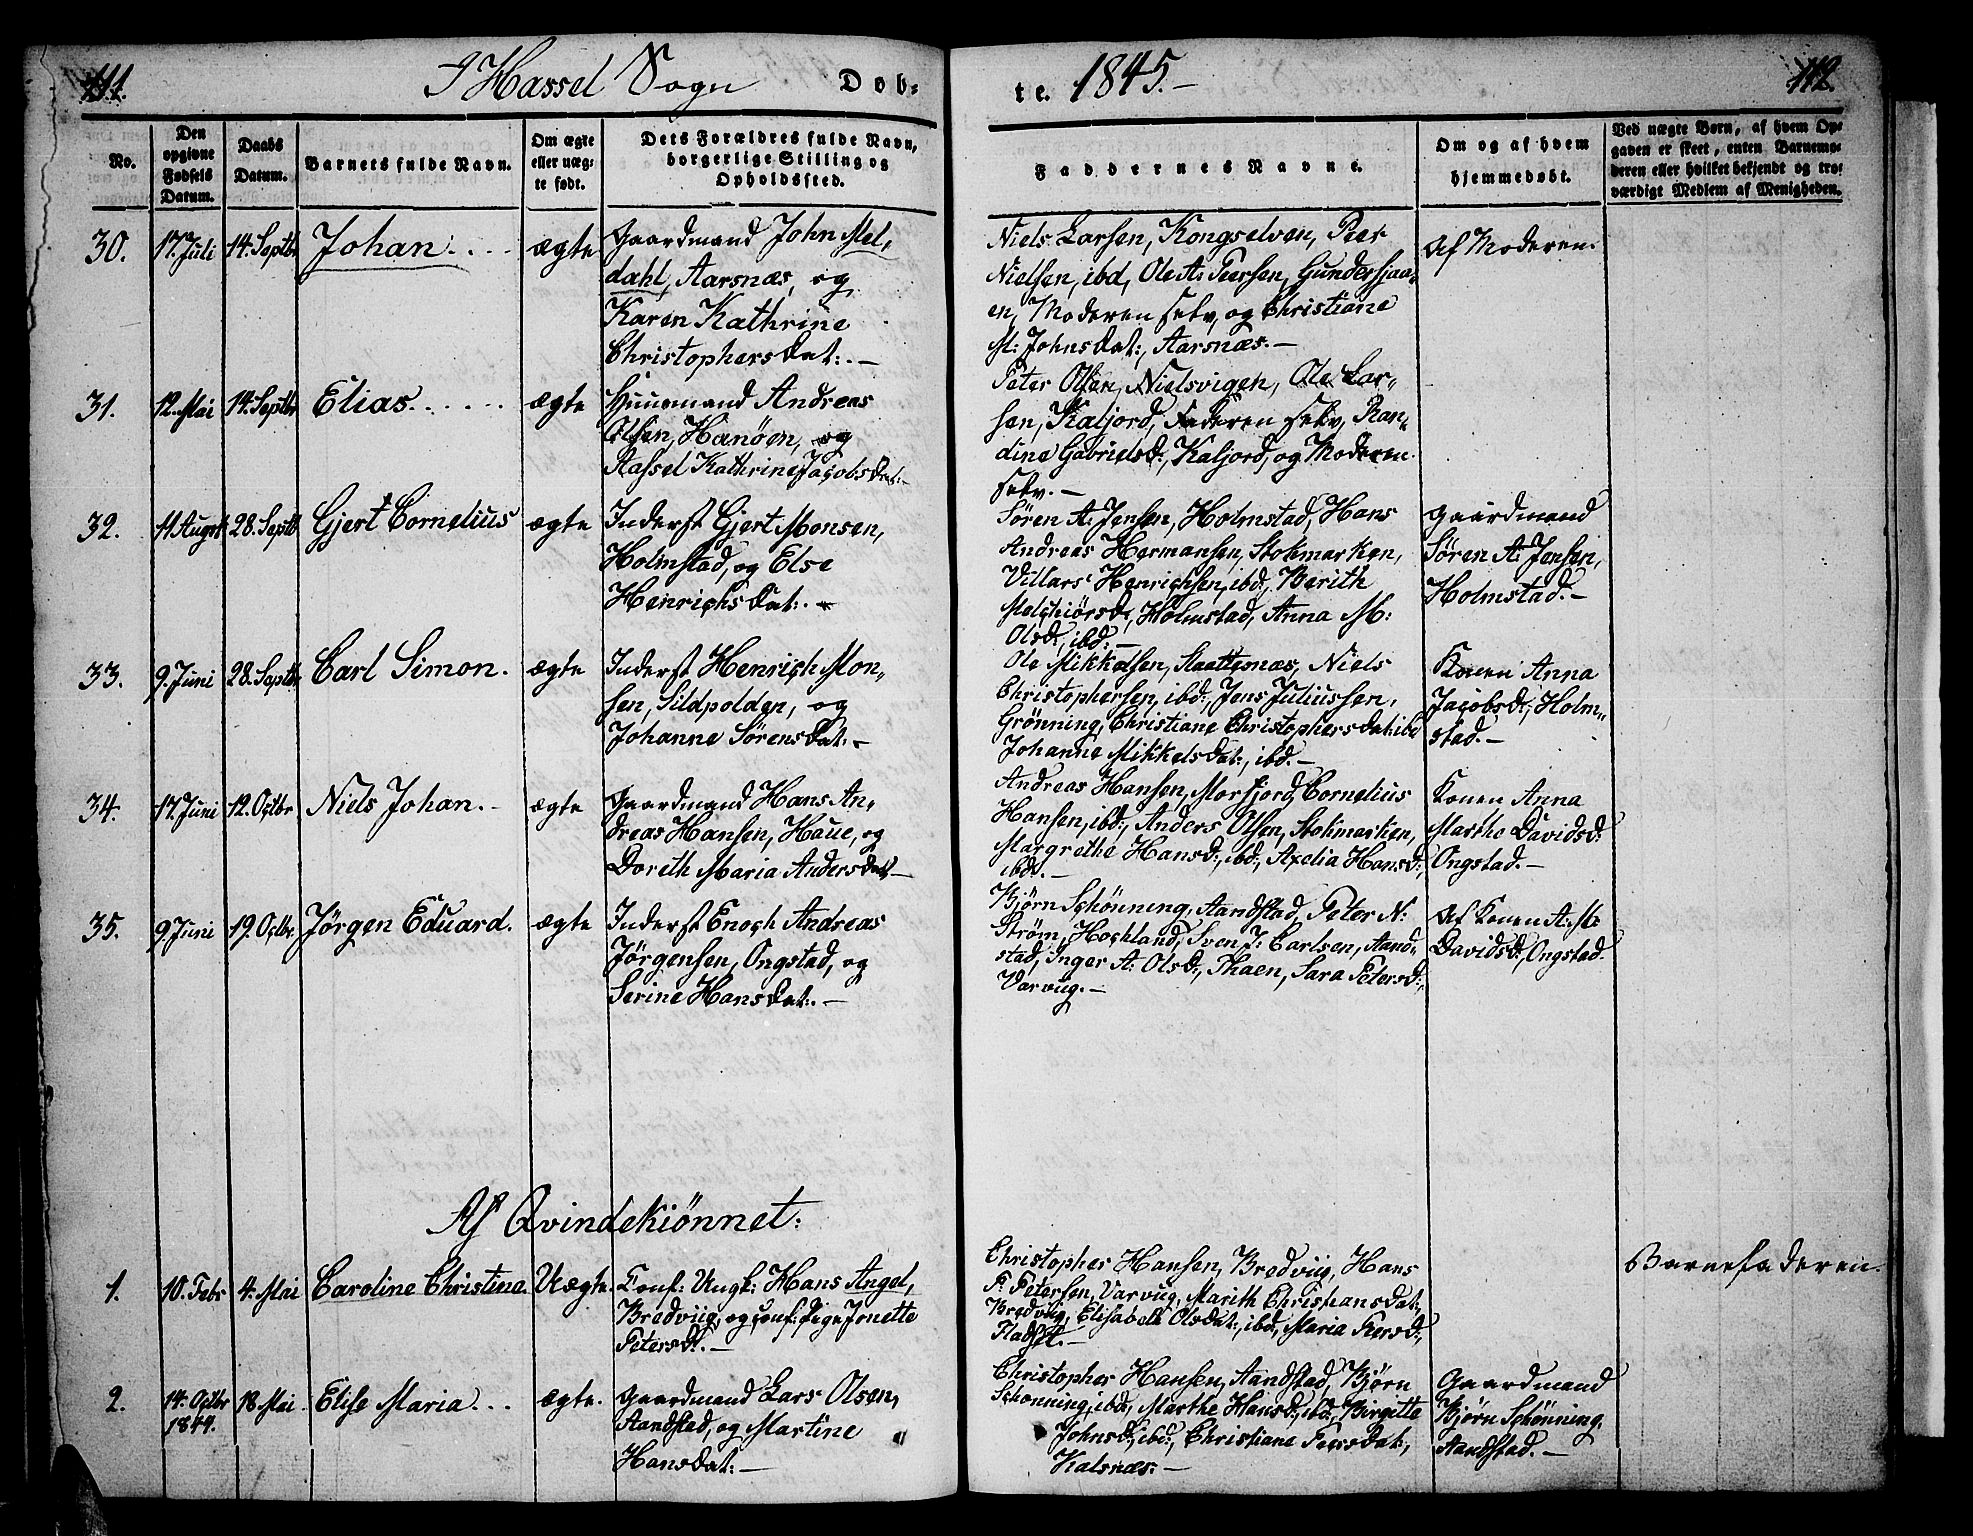 111.
I Hassel Sogn
Dob-
te. 1845.-
112.
No.
Den opgivne Fødsels Datum.
Daabs Datum.
Barnets fulde Navn.
Om ægte eller uæg-
te født.
Dets Forældres fulde Navn,
borgerlige Stilling og
Opholdssted.
Faddernes Navne.
Om og af hvem
hjemmedøbt.
Ved uægte Børn, af hvem Op-
gaven er skeet, enten Barnemo-
deren eller hvilket bekjendt og tro-
værdigt Medlem af Menigheden.
30.
17. Juli
14. Septbr
Johan. . . .
ægte
Gaardmand John Mel-
dahl, Aarsnæs, og
Karen Kathrine
Christophersdat:.-
Niels Larsen, Kongselven, Peer
Nielsen, ibd, Ole A: Peersen, Gundersjaa-
en, Moderen selv, og Christiane
M: Johnsdat:, Aarsnæs.-
Af Moderen.
31.
12. Mai
14. Septbr
Elias. . . . . .
ægte
Huusmand Andreas
Olsen, Hanöen, og
Aassel Kathrine Jacobsdat:-
Peter Olsen, Nielsvigen, Ole Lar-
sen, Kaljord, Faderen selv, Ran-
dine Gabrielsd:, Kaljord, og Moderen
selv.-
32.
11 Augst
28. Septb
Gjert Cornelius
ægte
Inderst Gjert Monsen,
Holmstad, og Else
Henrichsdat:.-
Søren A: Jensen, Holmstad, Hans
Andreas Hermansen, Stokmarken,
Villars Henrichsen, ibd:, Berith
Melchiørsd:, Holmstad, Anna M:
Olsd:, ibd:-
Gaardmand
Søren A: Jensen,
Holmstad.-
33.
9. Juni
28. Septbr
Carl Simon.
ægte
Inderst Henrich Mon-
sen, Sildpolden, og
Johanne Sörensdat:-
Ole Mikkelsen, Slaattesnæs, Niels
Christophersen, ibd:, Jens Juliussen,
Grönning, Christiane Christophersdat: ibd
Johanne Mikkelsdat:, ibd.-
Konen Anna
Jacobsd:, Holm-
stad.-
34.
17. Juni
12. Octbr
Niels Johan.-
ægte
Gaardmand Hans An-
dreas Hansen, Haue, og
Doreth Maria Andersdat-
Andreas Hansen, Morfjord, Cornelius
Hansen, ibd:, Anders Olsen, Stokmarken,
Margrethe Hansd:, ibd:, Axelia Hansd:,
ibd:.-
Konen Anna
Marthe Davidsd:
Ongstad.-
35.
9. Juni
19. Octbr.
Jörgen Eduard.
ægte
Inderst Enoch Andreas
Jörgensen, Ongstad, og
Serine Hansdat:.-
Bjørn Schönning, Aandstad, Peter N:
Ström, Hochland, Sven J: Carlsen, Aand-
stad, Inger A: Olsd:, Thaen, Sara Petersd:,
Varviig.-
Af Konen A: M:
Davidsd:, Ongstad.
Af Qvindekiønnet:
1.
10. Febr
4. Mai
Caroline Christina.
Uægte.
Conf: Ungk: Hans Angel,
Bredviig, og conf: Pige Jonette
Petersd:.-
Christopher Hansen, Bredviig, Hans
P: Petersen, Varviig, Marith Christiansdat:,
Bredviig, Elisabeth Olsdat:, ibd:, Maria Peersd:,
Fladset.-
Barnefaderen.
2.
14. Octbr
1844.
18. Mai
Elise Maria. . .
ægte.
Gaardmand Lars Olsen,
Aandstad, og Martine
Hansdat:-
Christopher Hansen, Aandstad, Bjørn
Schonning, ibd:, Marthe Hansd:, ibd:, Birgitte
Johnsd:, ibd:, Christiane Peersdat:,
Kalsnæs.-
Gaardmand
Bjørn Schönning,
Aandstad.-